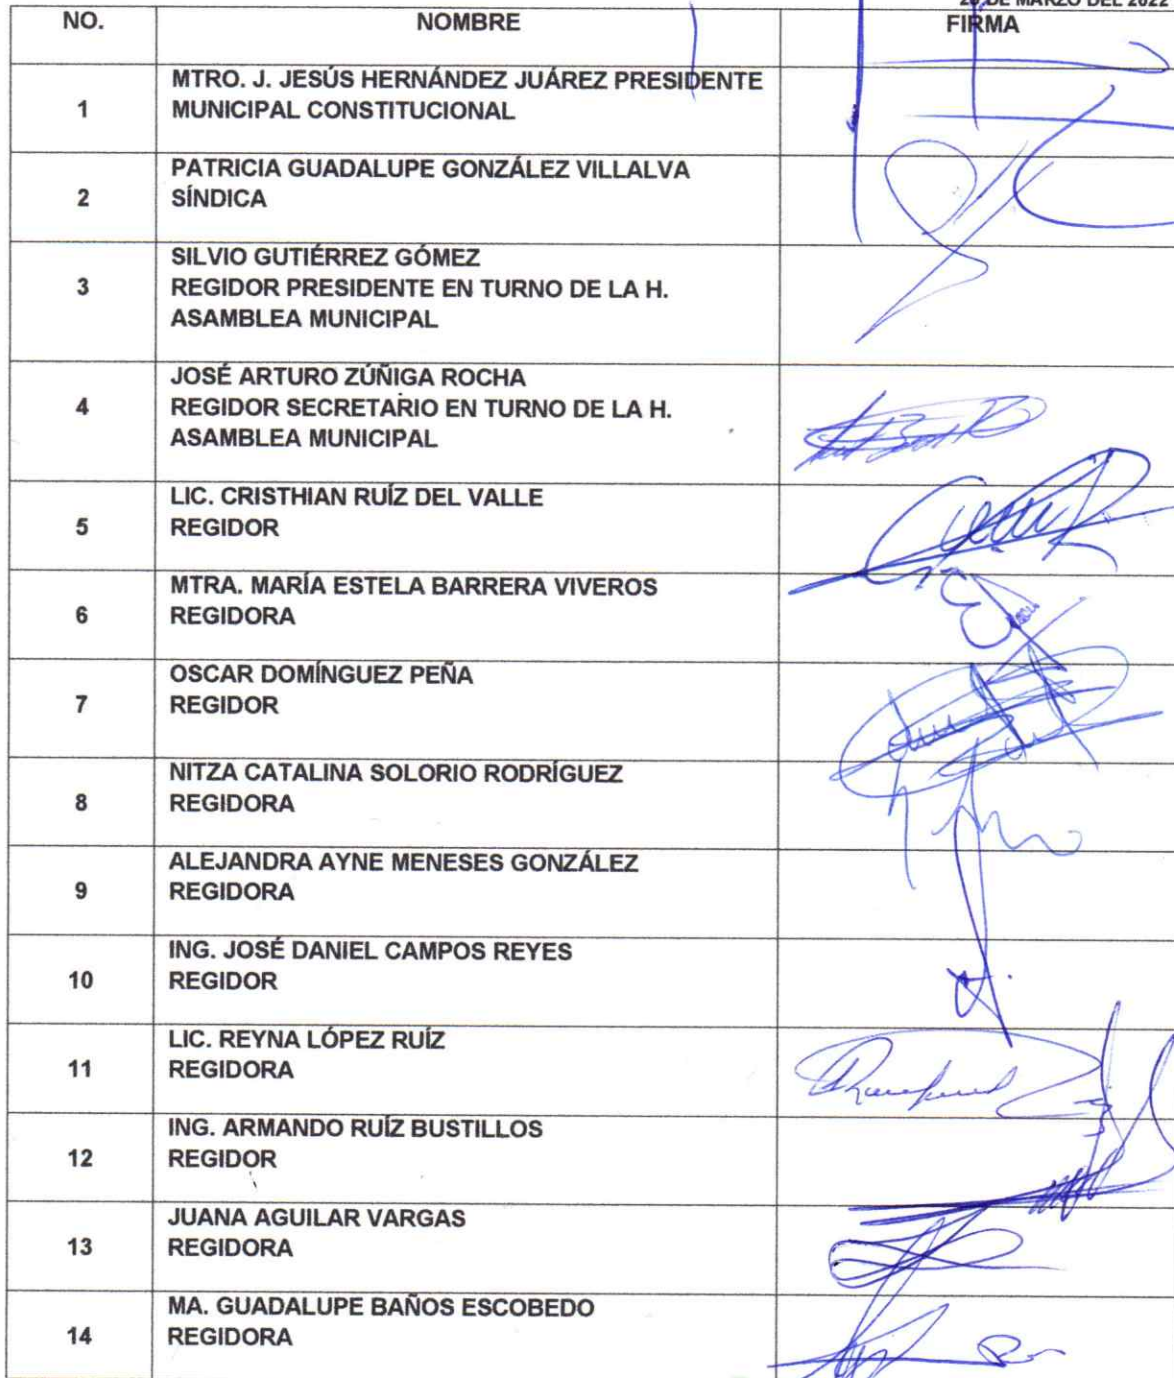 DE MARZO DEL 2022
NO. NOMBRE FIRMA
1 MTRO. J. JESÚS HERNÁNDEZ JUÁREZ PRESIDENTE
MUNICIPAL CONSTITUCIONAL
2 PATRICIA GUADALUPE GONZÁLEZ VILLALVA
SÍNDICA
3 SILVIO GUTIÉRREZ GÓMEZ
REGIDOR PRESIDENTE EN TURNO DE LA H.
ASAMBLEA MUNICIPAL
4 JOSÉ ARTURO ZÚÑIGA ROCHA
REGIDOR SECRETARIO EN TURNO DE LA H.
ASAMBLEA MUNICIPAL
5 LIC. CRISTHIAN RUÍZ DEL VALLE
REGIDOR
6 MTRA. MARÍA ESTELA BARRERA VIVEROS
REGIDORA
7 OSCAR DOMÍNGUEZ PEÑA
REGIDOR
8 NITZA CATALINA SOLORIO RODRÍGUEZ
REGIDORA
9 ALEJANDRA AYNE MENESES GONZÁLEZ
REGIDORA
10 ING. JOSÉ DANIEL CAMPOS REYES
REGIDOR
11 LIC. REYNA LÓPEZ RUÍZ
REGIDORA
12 ING. ARMANDO RUÍZ BUSTILLOS
REGIDOR
13 JUANA AGUILAR VARGAS
REGIDORA
14 MA. GUADALUPE BAÑOS ESCOBEDO
REGIDORA